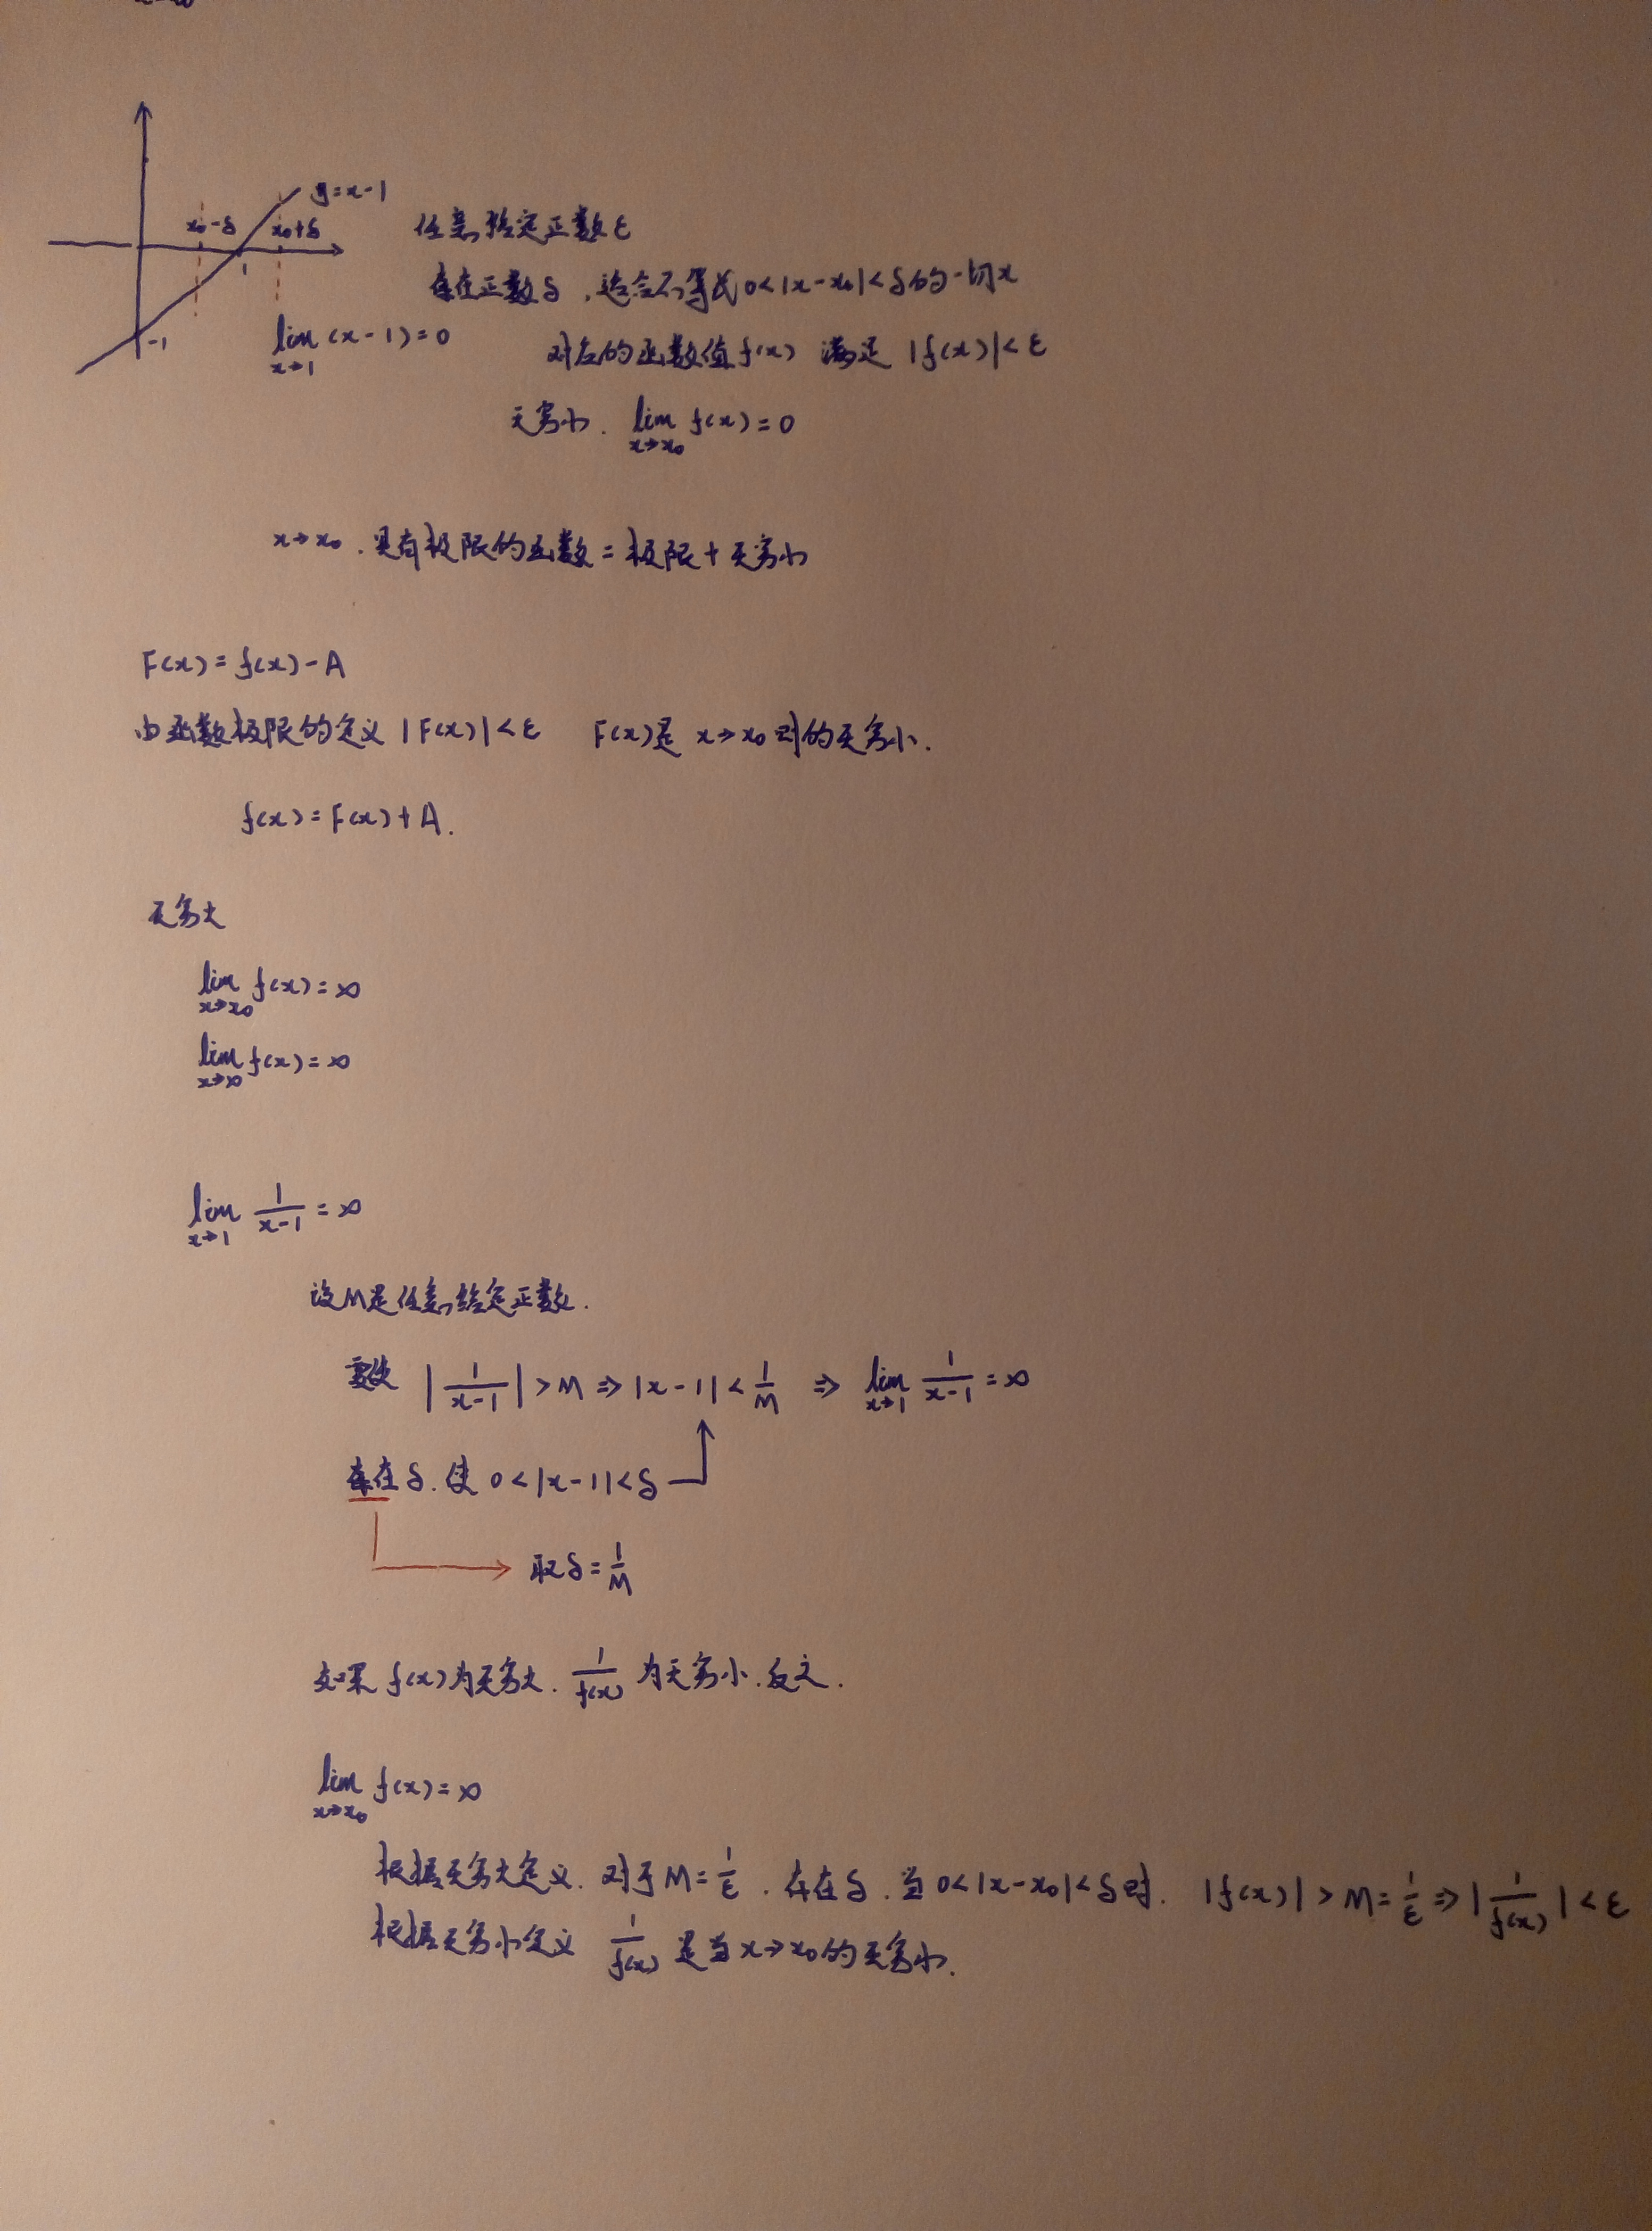 y=x-1
x₀-δ x₀+δ
1
-1
任意给定正数ε
存在正数δ,适合不等式0<|x-x₀|<δ的一切x
lim(x-1)=0
x→1
对应的函数值f(x) 满足 |f(x)|<ε
无穷小. lim f(x)=0
x→x₀
x→x₀.具有极限的函数=极限+无穷小
F(x)=f(x)-A
由函数极限的定义 |F(x)|<ε F(x)是 x→x₀时的无穷小.
f(x)=F(x)+A.
无穷大
lim f(x)=∞
x→x₀
lim f(x)=∞
x→∞
lim 1/(x-1) =∞
x→1
设M是任意给定正数.
要使 |1/(x-1)|>M ⇒ |x-1|<1/M ⇒ lim 1/(x-1) =∞
x→1
存在δ.使 0<|x-1|<δ
取δ=1/M
如果 f(x)为无穷大. 1/f(x) 为无穷小.反之.
lim f(x)=∞
x→x₀
根据无穷大定义. 对于M=1/ε. 存在δ.当0<|x-x₀|<δ时. |f(x)|>M=1/ε⇒|1/f(x)|<ε
根据无穷小定义 1/f(x) 是当x→x₀的无穷小.